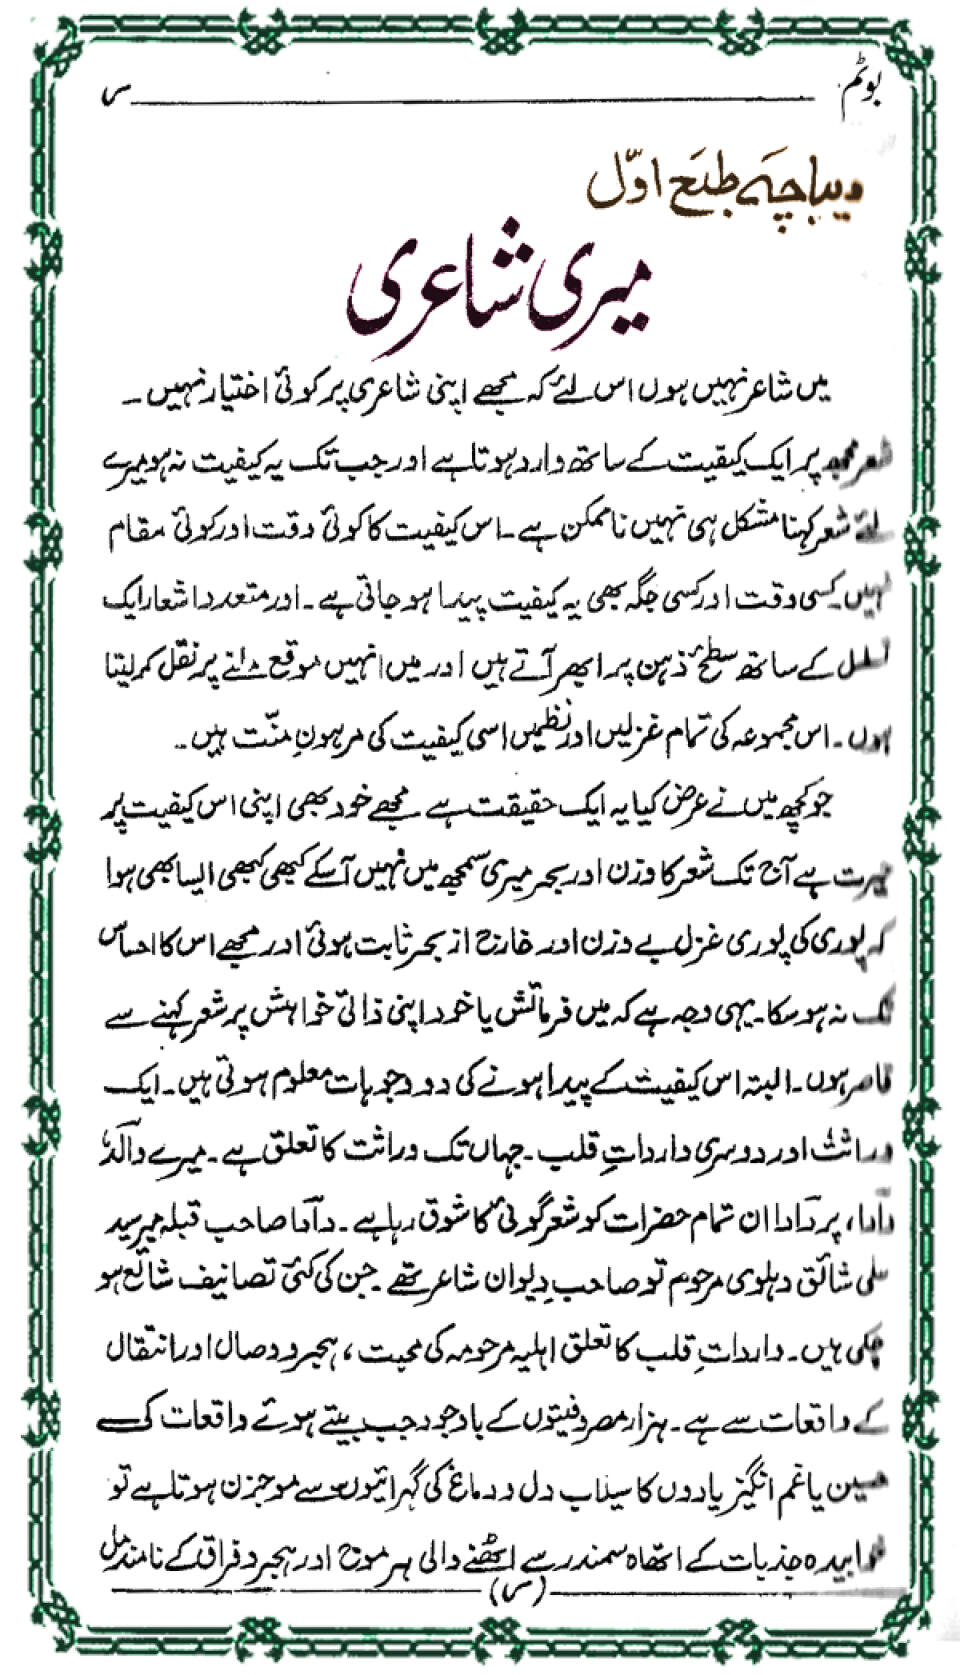 بوٹم
۴
دیباچہ طبع اوّل
میری شاعری
میں شاعر نہیں ہوں اس لئے کہ مجھے اپنی شاعری پر کوئی اختیار نہیں ۔
شعر مجھ پر ایک کیفیت کے ساتھ وارد ہوتا ہے اور جب تک یہ کیفیت نہ ہو میرے
لئے شعر کہنا مشکل ہی نہیں ناممکن ہے ۔ اس کیفیت کا کوئی وقت اور کوئی مقام
نہیں ۔ کسی وقت اور کسی جگہ بھی یہ کیفیت پیدا ہو جاتی ہے ۔ اور متعدد اشعار ایک
تسلسل کے ساتھ سطحِ ذہن پر ابھر آتے ہیں اور میں انہیں موقع ملنے پر نقل کر لیتا
ہوں ۔ اس مجموعہ کی تمام غزلیں اور نظمیں اسی کیفیت کی مرہونِ منّت ہیں ۔
جو کچھ میں نے عرض کیا یہ ایک حقیقت ہے ۔ مجھے خود بھی اپنی اس کیفیت پر
حیرت ہے آج تک شعر کا وزن اور بحر میری سمجھ میں نہیں آ سکے کبھی کبھی ایسا بھی ہوا
کہ پوری کی پوری غزل بے وزن اور خارج از بحر ثابت ہوئی اور مجھے اس کا احساس
تک نہ ہو سکا ۔ یہی وجہ ہے کہ میں فرمائش یا خود اپنی ذاتی خواہش پر شعر کہنے سے
قاصر ہوں ۔ البتہ اس کیفیت کے پیدا ہونے کی دو وجوہات معلوم ہوتی ہیں ۔ ایک
وراثت اور دوسری وارداتِ قلب ۔ جہاں تک وراثت کا تعلق ہے ۔ میرے والد
دادا ، پردادا ان تمام حضرات کو شعر گوئی کا شوق رہا ہے ۔ دادا صاحب قبلہ میر سید
علی شائق دہلوی مرحوم تو صاحبِ دیوان شاعر تھے جن کی کئی تصانیف شائع ہو
چکی ہیں ۔ وارداتِ قلب کا تعلق اہلیہ مرحومہ کی محبت ، ہجر و وصال اور انتقال
کے واقعات سے ہے ۔ ہزار مصروفیتوں کے باوجود جب بیتے ہوئے واقعات کی
حسین یا غم انگیز یادوں کا سیلاب دل و دماغ کی گہرائیوں سے موجزن ہوتا ہے تو
خوابیدہ جذبات کے اتھاہ سمندر سے اٹھنے والی ہر موج اور ہجر و فراق کے نامندمل
(۴)